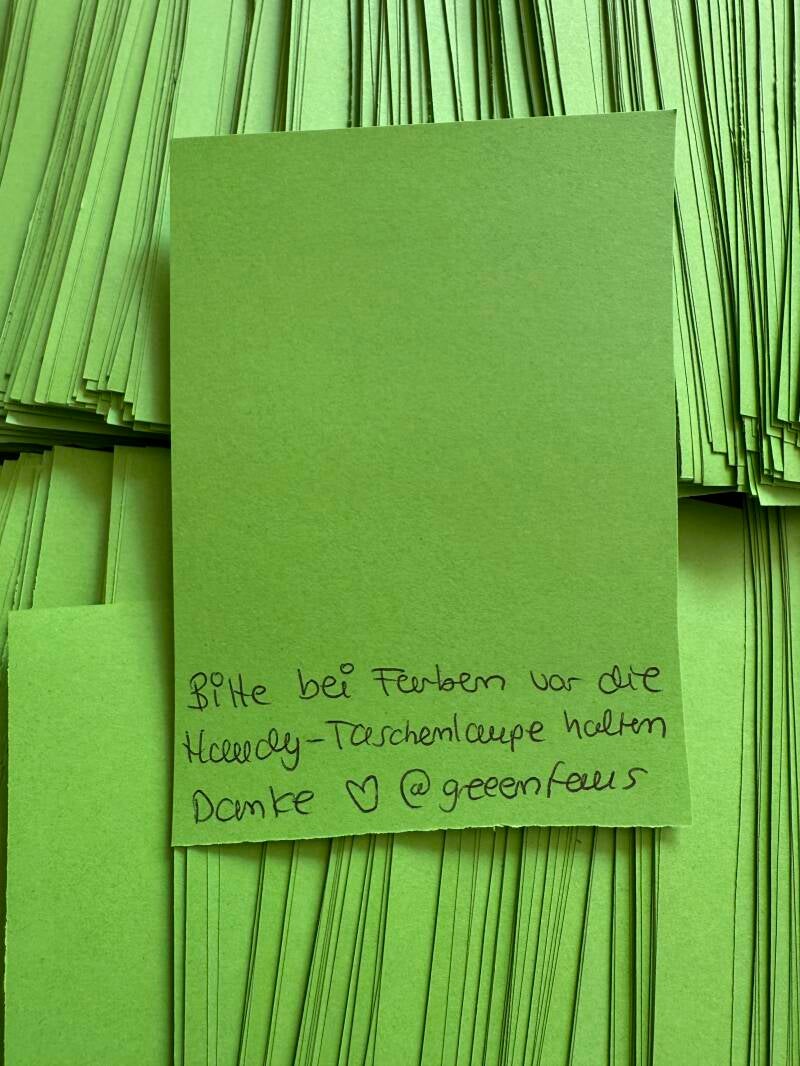 Bitte bei Farben vor die
Handy-Taschenlampe halten
Danke ♡ @greeenfaus